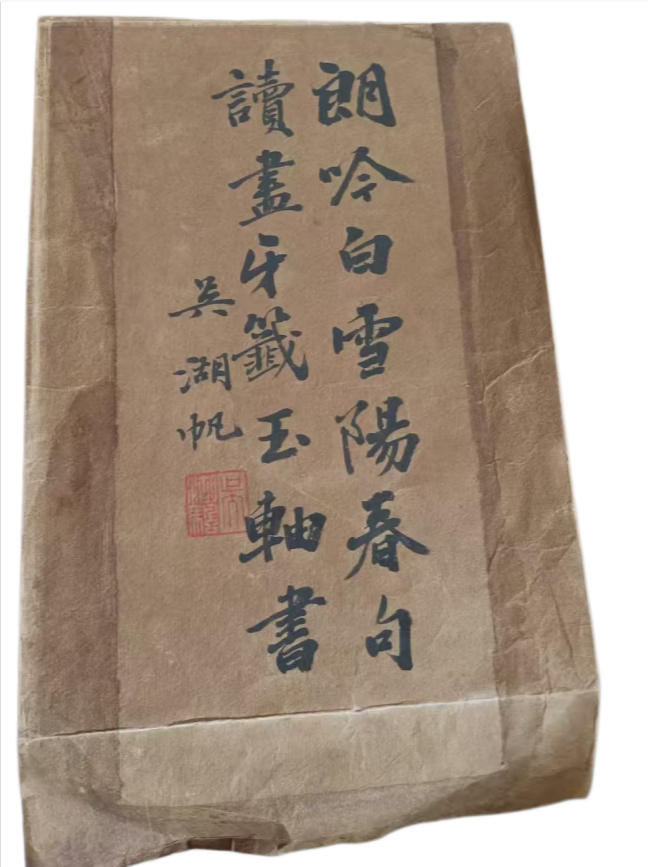 朗吟白雪陽春句
讀盡牙籤玉軸書
吳湖帆